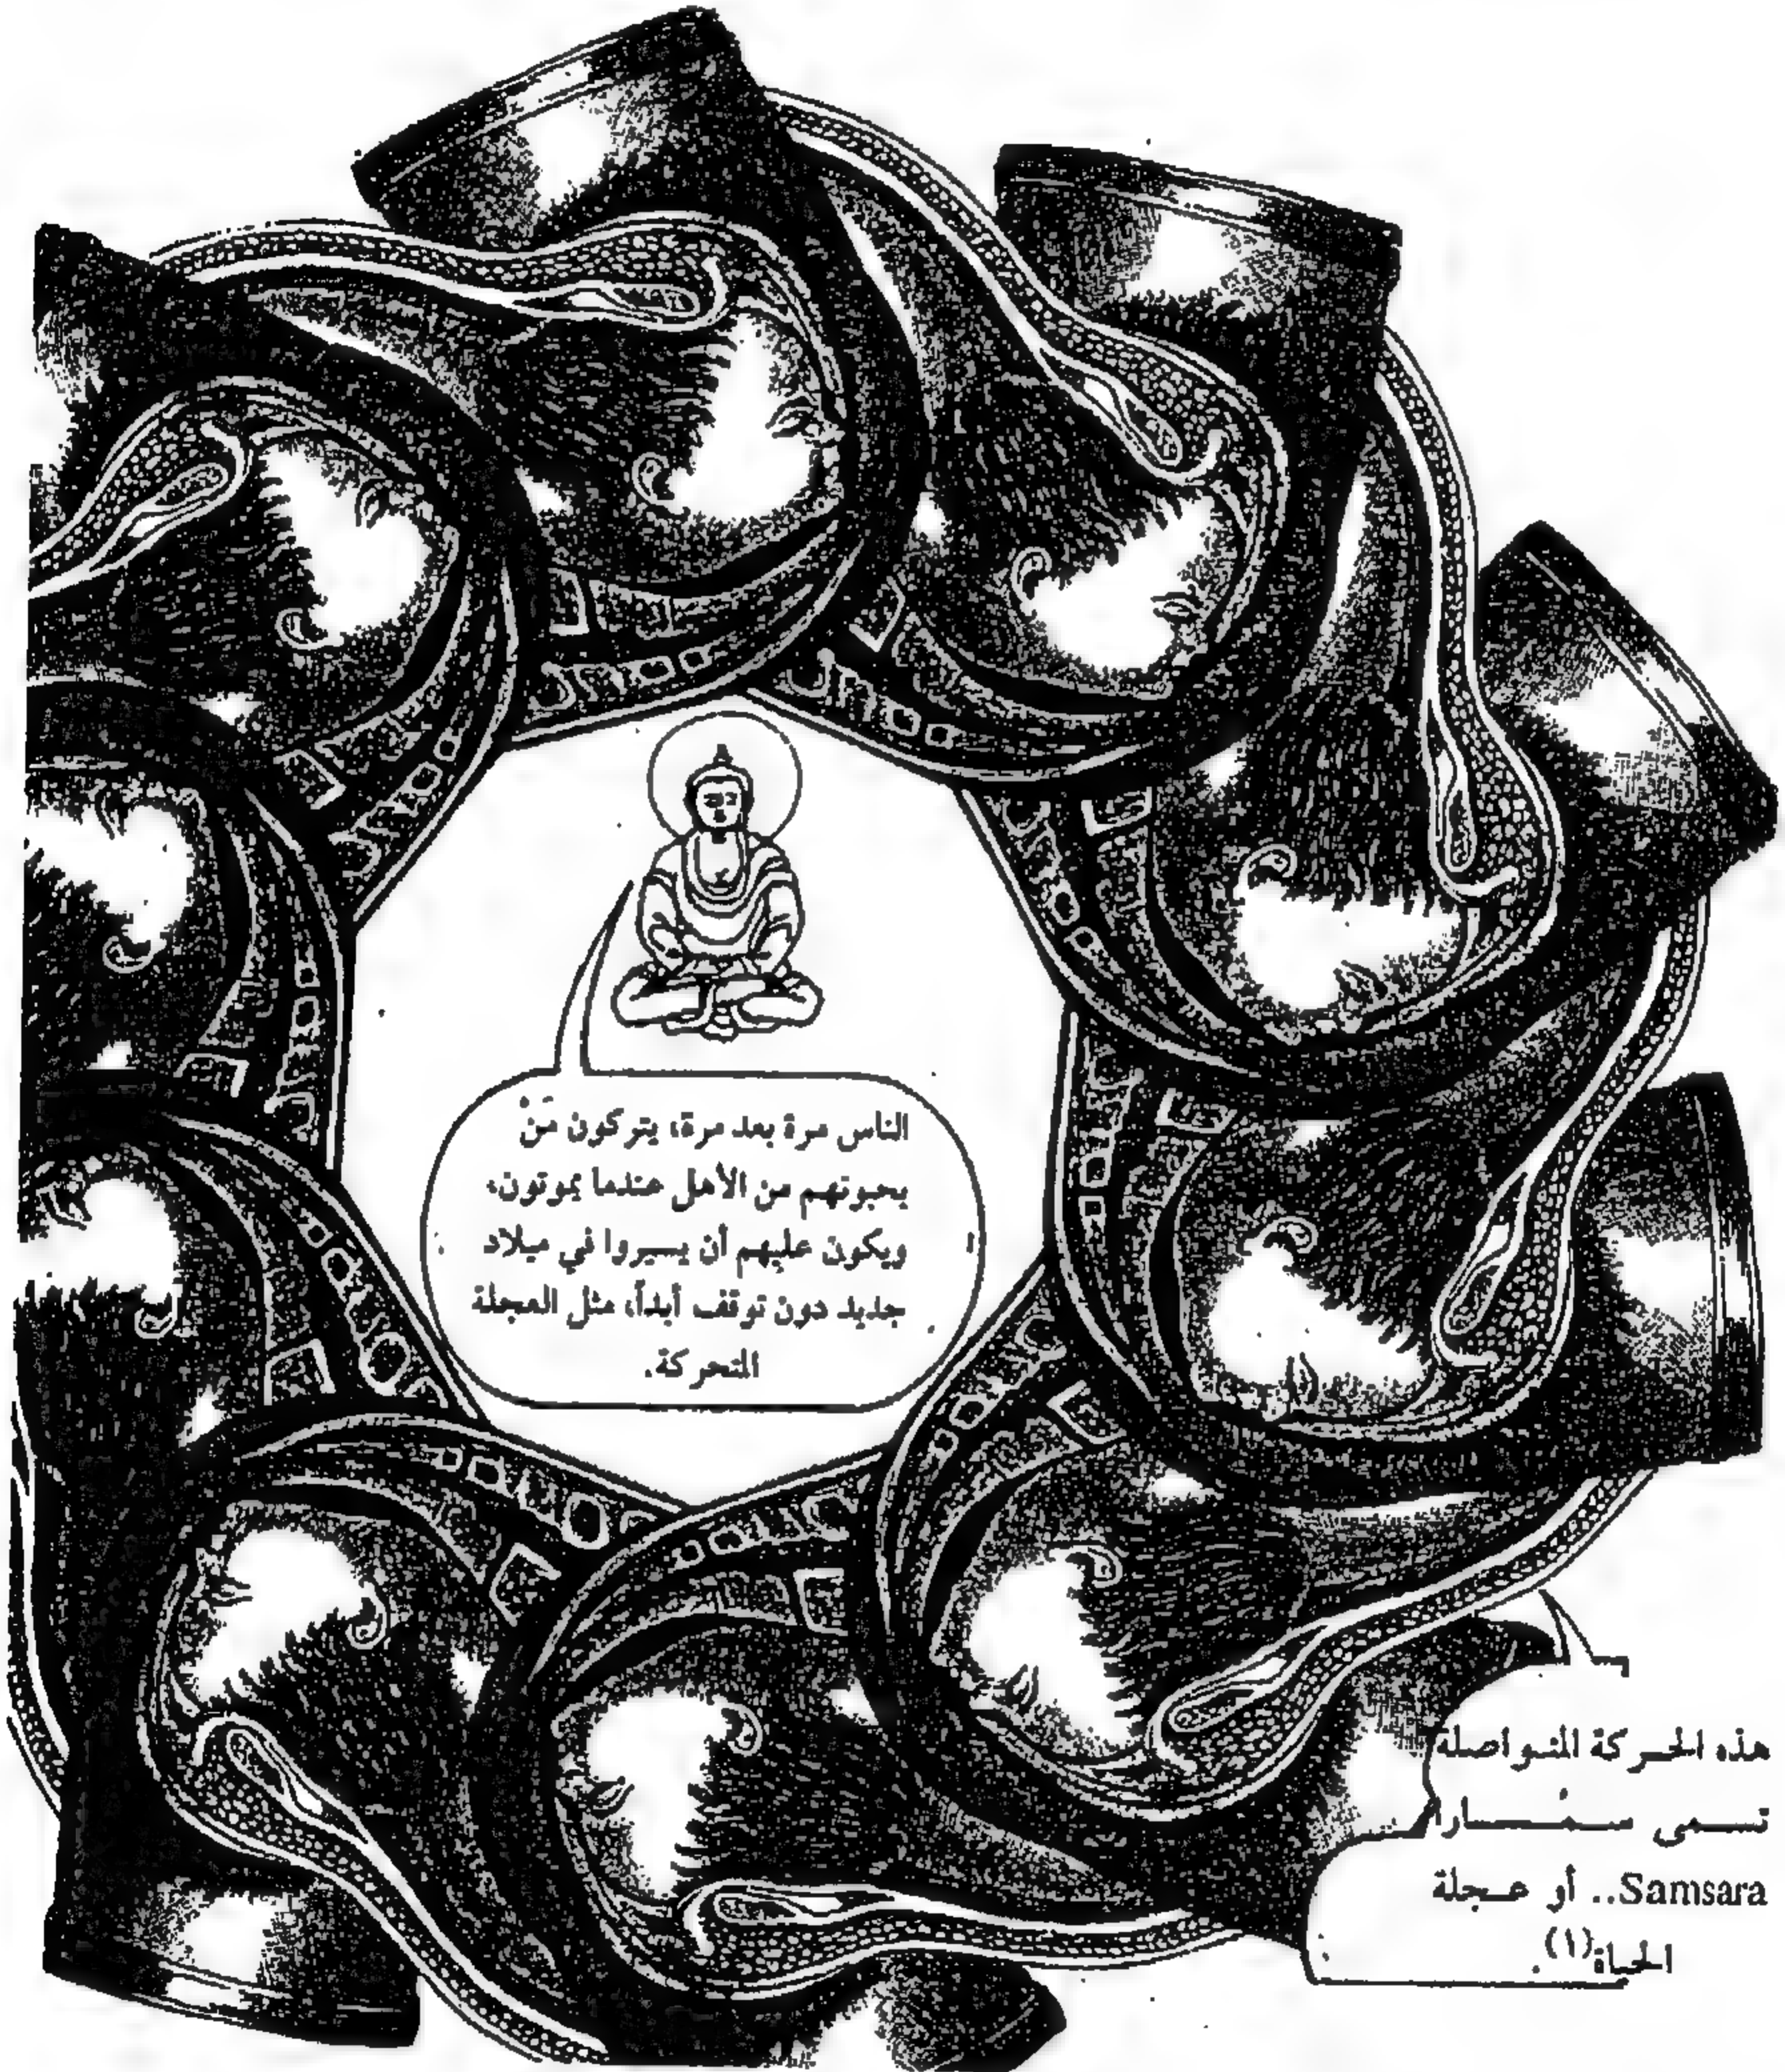 الناس مرة بعد مرة، يتركون مَنْ
يحبونهم من الأهل عندما يموتون،
ويكون عليهم أن يسيروا في ميلاد
جديد دون توقف أبداً، مثل العجلة
المتحركة.
هذه الحركة المتواصلة
تسمى سمُسارا
Samsara.. أو عجلة
الحياة(١).